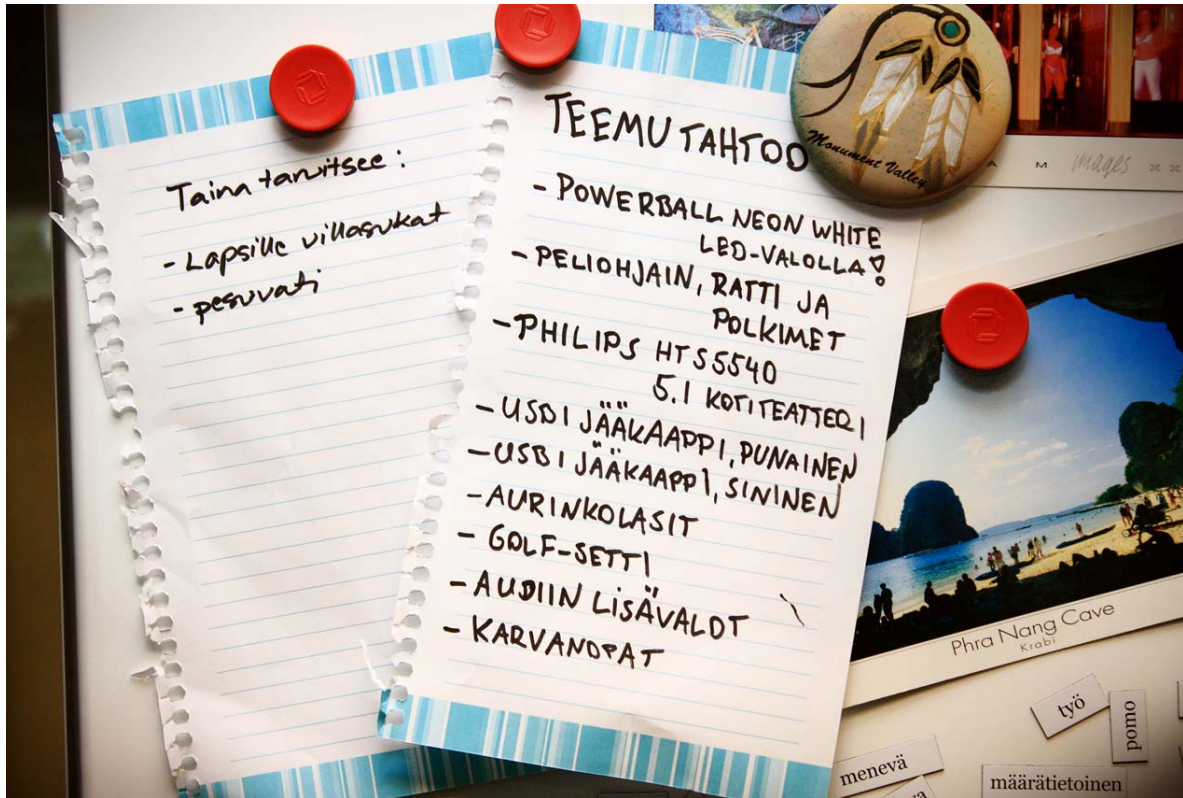 Taina tarvitsee:
- Lapsille villasukat
- pesuvati
TEEMU TAHTOO
- POWERBALL NEON WHITE
LED-VALOLLA!
- PELIOHJAIN, RATTI JA
POLKIMET
- PHILIPS HTS5540
5.1 KOTITEATTERI
- USB JÄÄKAAPPI, PUNAINEN
- USB JÄÄKAAPPI, SININEN
- AURINKOLASIT
- GOLF-SETTI
- AUDIIN LISÄVALOT
- KARVANOPAT
Monument Valley
images
Phra Nang Cave
Krabi
työ
pomo
menevä
määrätietoinen